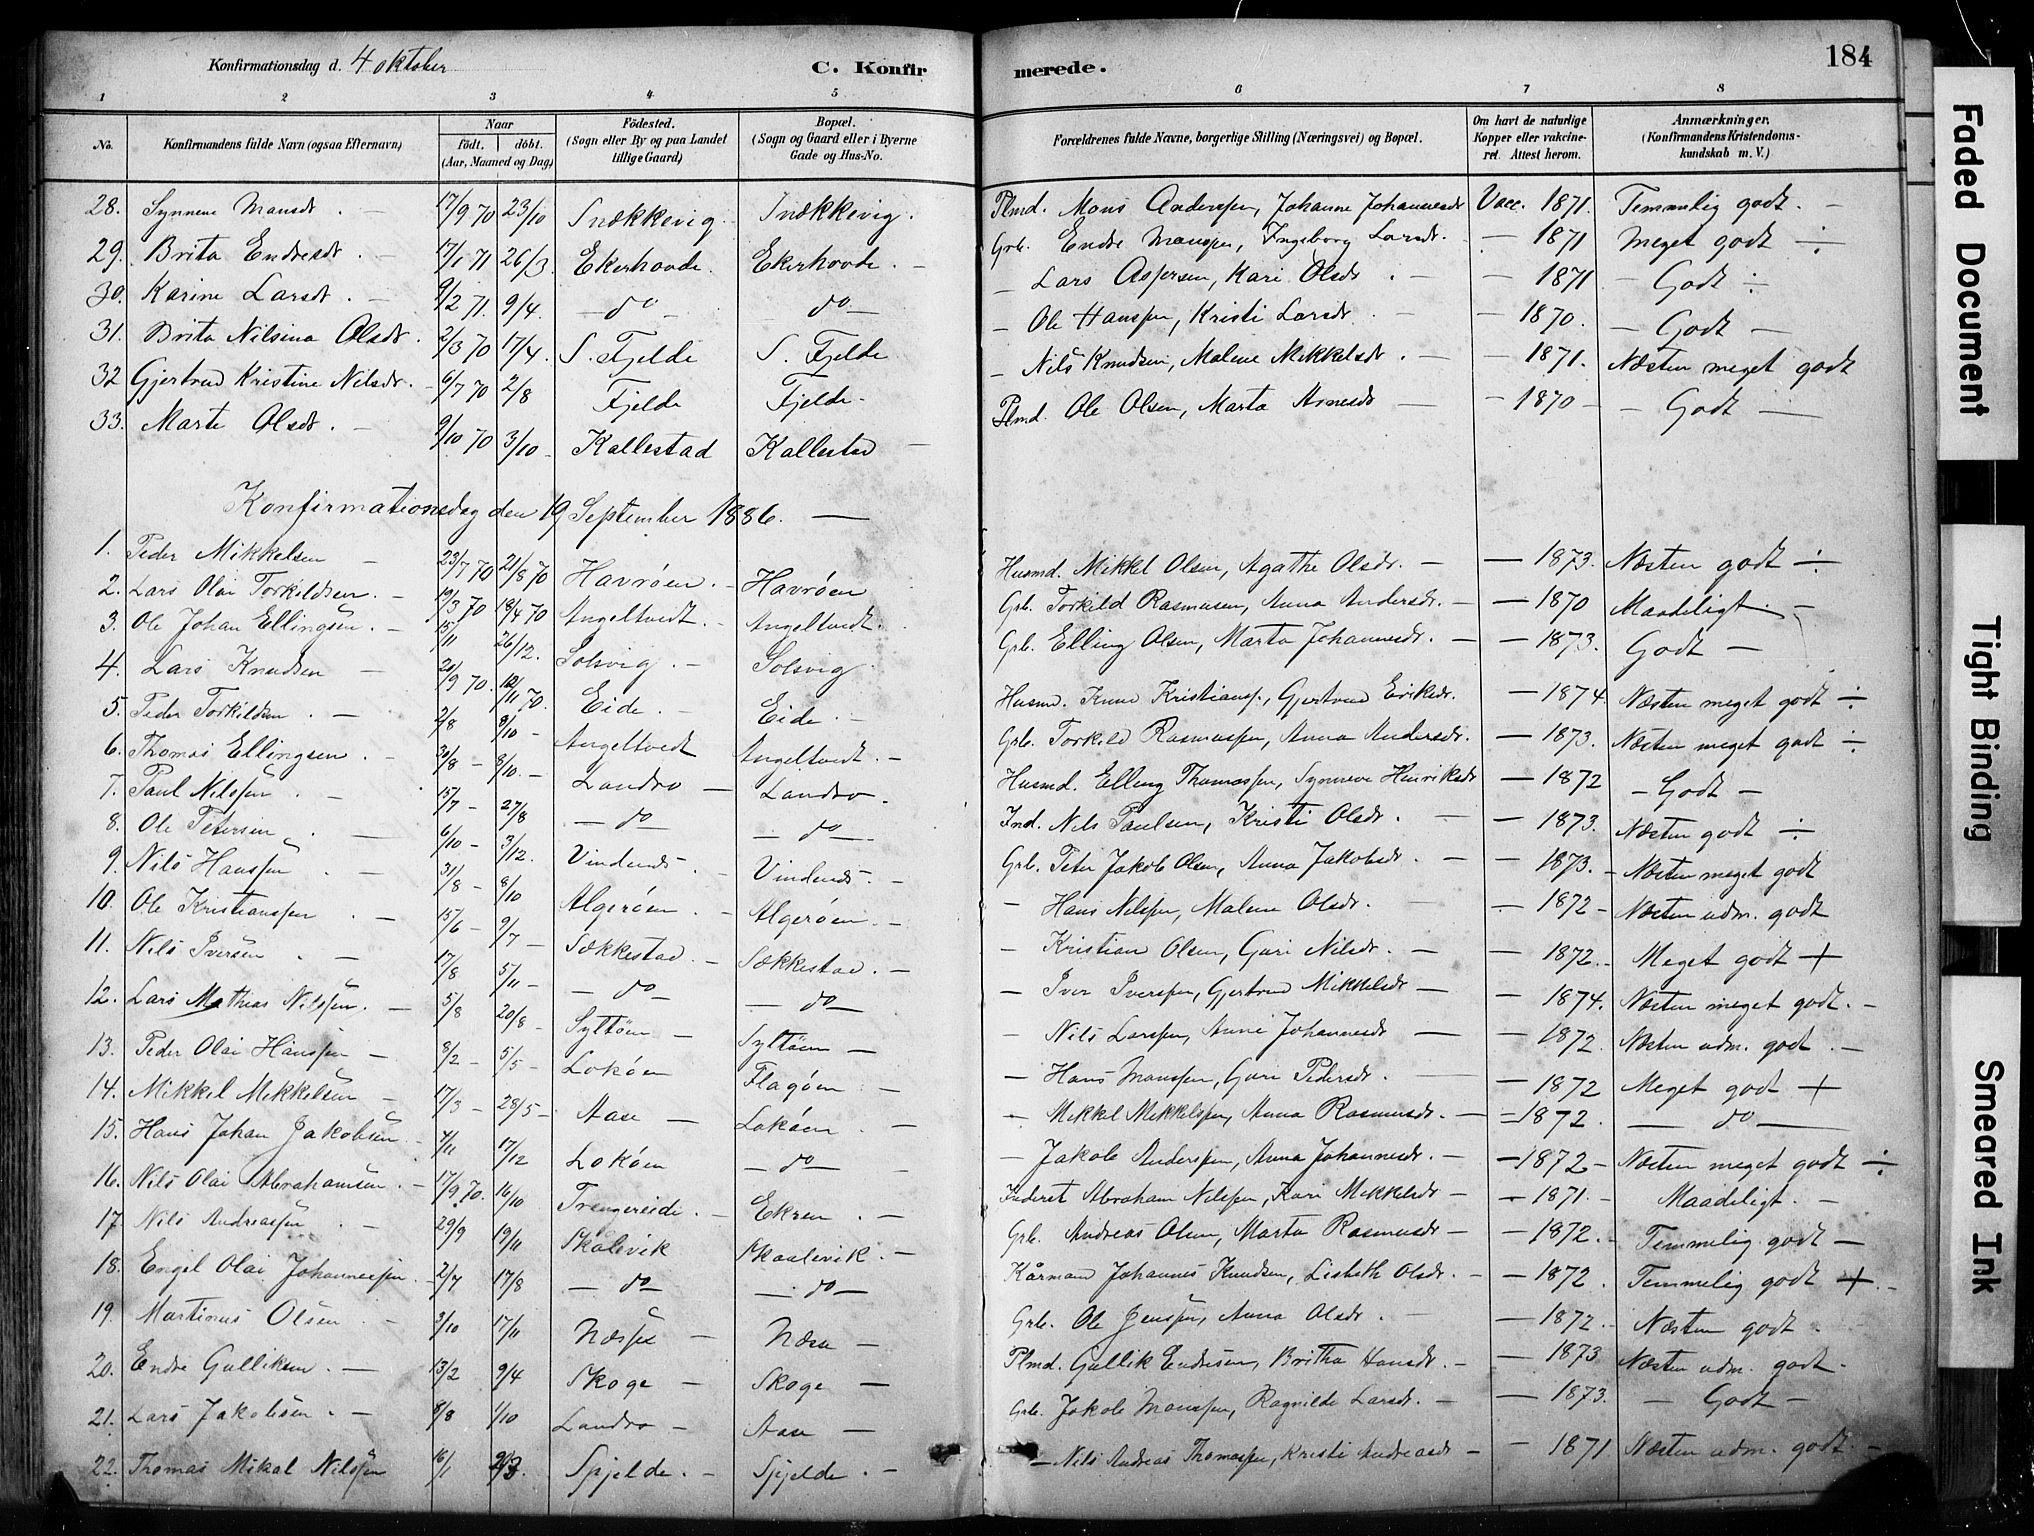 Konfirmationsdag d. 4 oktober
C. Konfir
merede.
184
1 2 3 4 5 6 7 8
No. Konfirmandens fulde Navn (ogsaa Efternavn) Naar födt. döbt. (Aar, Maaned og Dag) Födested. (Sogn eller By og paa Landet tillige Gaard) Bopæl. (Sogn og Gaard eller i Byerne Gade og Hus-No. Forældrenes fulde Navne, borgerlige Stilling (Næringsvei) og Bopæl. Om havt de naturlige Kopper eller vakcineret. Attest herom. Anmærkninger. (Konfirmandens Kristendomskundskab m. V.)
28. Synneve Mansdt. 17/9 70 23/10 Snækkevig. Snækkevig. Plmd. Mons Anderssen, Johanne Johannesdt Vacc. 1871. Temmelig godt. —
29. Brita Endresdt. 17/1 71 26/3. Ekerhovde. Ekerhovde. — Grb. Endre Manssen, Ingeborg Larsdt. — 1871 Meget godt ÷
30. Karine Larsdt. — 9/2 71. 9/4. — do — — do — — Lars Aspersen, Kari Olsdt. — 1871 — Godt ÷
31. Brita Nilsina Olsdt. 2/3 70 17/4. S. Fjelde S. Fjelde — Ole Hanssen, Kristi Larsdt. — 1870. — Godt —
32 Gjertrud Kristine Nilsdt. 6/7 70 2/8 Fjelde Fjelde. — Nils Knudsen, Malene Mikkelsdt. — 1871. Næsten meget godt
33. Marte Olsdt. 9/10 70 3/10 Kallestad Kallestad — Plmd. Ole Olsen, Marta Arnesdt — 1870 — Godt —
Konfirmationsdag den 19 September 1886. —
1. Peder Mikkelsen — 23/7 70 21/8 70 Havröen. Havröen Husmd. Mikkel Olsen, Agathe Olsdt. — 1873. Næsten godt ÷
2. Lars Olai Torkildsen. 19/3 70 18/4 70 Angeltvedt. Angeltvedt. Grb. Torkild Rasmusen, Anna Andersdt. — 1870 Maadeligt. —
3. Ole Johan Ellingsen. 15/11 26/12. Solsvig. Solsvig. Grb. Elling Olsen, Marta Johannesdt. — 1873. Godt —
4. Lars Knudsen — 20/9 70. 12/11 70. Eide. Eide. Husmd. Knud Kristianss., Gjertrud Eriksdt. — 1874. Næsten meget godt ÷
5. Peder Torkildsen. — 2/8 8/10 — Angeltvedt Angeltvedt. — Grb. Torkild Rasmussen, Anna Andersdt. — 1873. Næsten meget godt ÷
6. Thomas Ellingsen. 30/8 — 8/10. — Landro Landro. Husmd. Elling Thomassen, Synneve Henriksdt — 1872 — Godt —
7. Paul Nilssen. — 15/7 — 27/8 — do — — do — Ind. Nils Paulsen, Kristi Olsdt. — 1873. Næsten godt ÷
8. Ole Petersen. — 6/10 — 3/12. Vindenes. Vindenes. — Grb. Peter Jakob Olsen, Anna Jakobsdt. — 1873. — Næsten meget godt
9. Nils Hanssen. 31/8 — 8/10 Algeröen. Algeröen. — Hans Nilssen, Malene Olsdt. — 1872 — Næsten udm. godt
10. Ole Kristianssen. — 15/6 — 9/7 — Sækkestad. Sækkestad. — Kristian Olsen, Guri Nilsdt. — 1872. — Meget godt +
11. Nils Iversen. — 17/8 5/11 — — do — — do — — Iver Iverssen, Gjertrud Mikkelsdt — 1874. Næsten meget godt. —
12. Lars Mathias Nilssen. — 5/8 20/8 — Syltöen — Syltöen — — Nils Larssen, Anna Johannesdt — 1872. Næsten udm. godt. —
13. Peder Olai Hanssen — 8/2 — 5/5 — Loköen Flagöen — — Hans Manssen, Guri Pedersdt. — 1872 Meget godt +
14. Mikkel Mikkelsen — 17/3 — 28/5 — Aase — Loköen — — Mikkel Mikkelssen, Anna Rasmusdt. — 1872. — do —
15. Hans Johan Jakobsen. — 7/11 17/12 Loköen — do — — Jakob Anderssen, Anna Johannesdt. — 1872 — Næsten meget godt ÷
16. Nils Olai Abrahamsen. 17/9 70. 16/10 Trengereide. Ekren. — Inderst Abraham Nilssen, Kari Mikkelsdt — 1871. — Maadeligt. —
17. Nils Andreassen. 29/9 19/11 Skalevik Skaalevik. — Grb. Andreas Olsen, Marta Rasmusdt — 1872. — Temmelig godt —
18. Engel Olai Johannessen. 2/7 17/8 — do — — do — Kårmand Johannes Knudsen, Lisbeth Olsdt. — 1872. Temmelig godt +. —
19. Martinus Olsen — 3/10 17/11 Næsse — Næse — Grb. Ole Jenssen, Anna Olsdt. — 1872. Næsten godt.
20. Endre Gulliksen. — 13/2 9/4 Skoge — Skoge — Plmd. Gullik Endresen, Britha Hansdt. — 1873 Næsten udm. godt.
21. Lars Jakobsen. — 8/8 1/10 Landro — Aase — Grb. Jakob Manssen, Ragnilde Larsdt. — 1873. — Godt —
22. Thomas Mikal Nilssen 16/1 Spjelde. — Spjelde. — — Nils Andreas Thomassen, Kristi Andreasdt — 1871 Næsten udm. godt. —
Faded Document
Tight Binding
Smeared Ink